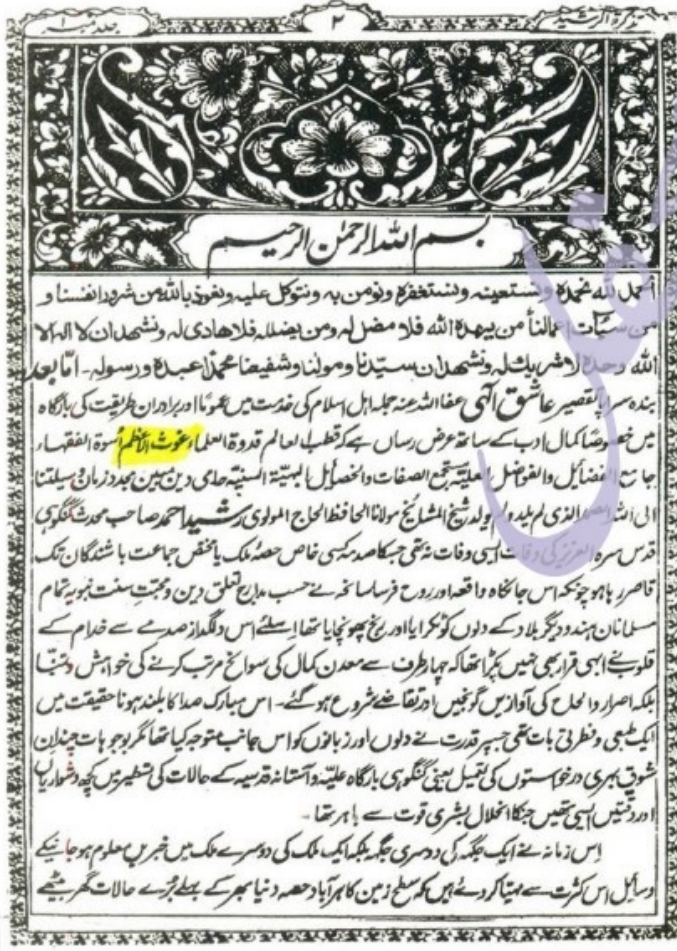 تذکرۃ الرشید
۲
جلد نمبر ۱
بسم اللہ الرحمٰن الرحیم
الحمد للہ نحمدہ ونستعینہ ونستغفرہ ونومن بہ ونتوکل علیہ ونعوذ باللہ من شرور انفسنا و
من سیات اعمالنا من یھدہ اللہ فلا مضل لہ ومن یضللہ فلا ھادی لہ ونشھد ان لا الہ الا
اللہ وحدہ لا شریک لہ ونشھد ان سیدنا ومولٰنا وشفیعنا محمدًا عبدہ ورسولہ۔ امّا بعد
بندہ سراپا تقصیر عاشق الٰہی عفا اللہ عنہ جملہ اہل اسلام کی خدمت میں عمومًا اور برادران طریقت کی بارگاہ
میں خصوصًا کمال ادب کے ساتھ عرض رساں ہے کہ قطب العالم قدوۃ العلماء غوث الاعظم اسوۃ الفقہاء
جامع الفضائل والفواضل العلیۃ مستجمع الصفات والخصائل البہیۃ السنیۃ حامی دین مبین مجدد زمان وسیلتنا
الی اللہ الصمد الذی لم یلد ولم یولد شیخ المشائخ مولانا الحافظ الحاج المولوی رشید احمد صاحب محدث گنگوہی
قدس سرہ العزیز کی وفات ایسی وفات نہ تھی جسکا صدمہ کسی خاص حصۂ ملک یا مختص جماعت باشندگان تک
قاصر رہا ہو چونکہ اس جانکاہ واقعہ اور روح فرسا سانحہ نے حسب مدارج تعلق دین و محبت سنت نبویہ تمام
مسلمانان ہند و دیگر بلاد کے دلوں کو ٹکرایا اور رنج پہونچایا تھا اسلئے اس دلگداز صدمے سے خدام کے
قلوب نے ابھی قرار بھی نہیں پکڑا تھا کہ چہار طرف سے معدن کمال کی سوانح مرتب کرنے کی خواہش و تمنا
بلکہ اصرار و الحاح کی آوازیں گونجیں اور تقاضے شروع ہو گئے۔ اس مبارک صدا کا بلند ہونا حقیقت میں
ایک طبعی و فطرتی بات تھی جسپر قدرت نے دلوں اور زبانوں کو اس جانب متوجہ کیا تھا مگر بوجوہات چندان
شوق بھری درخواستوں کی تعمیل یعنی گنگوہی بارگاہ علیّہ و آستانہ قدسیہ کے حالات کی تسطیر میں کچھ دشواریاں
اور دقتیں ایسی تھیں جنکا انحلال بشری قوت سے باہر تھا۔
اس زمانہ نے ایک جگہ کی دوسری جگہ بلکہ ایک ملک کی دوسرے ملک میں خبریں معلوم ہو جانیکے
وسائل اس کثرت سے مہیا کر دئے ہیں کہ سطح زمین کا ہر آباد حصہ دنیا بھر کے بھلے بُرے حالات گھر بیٹھے